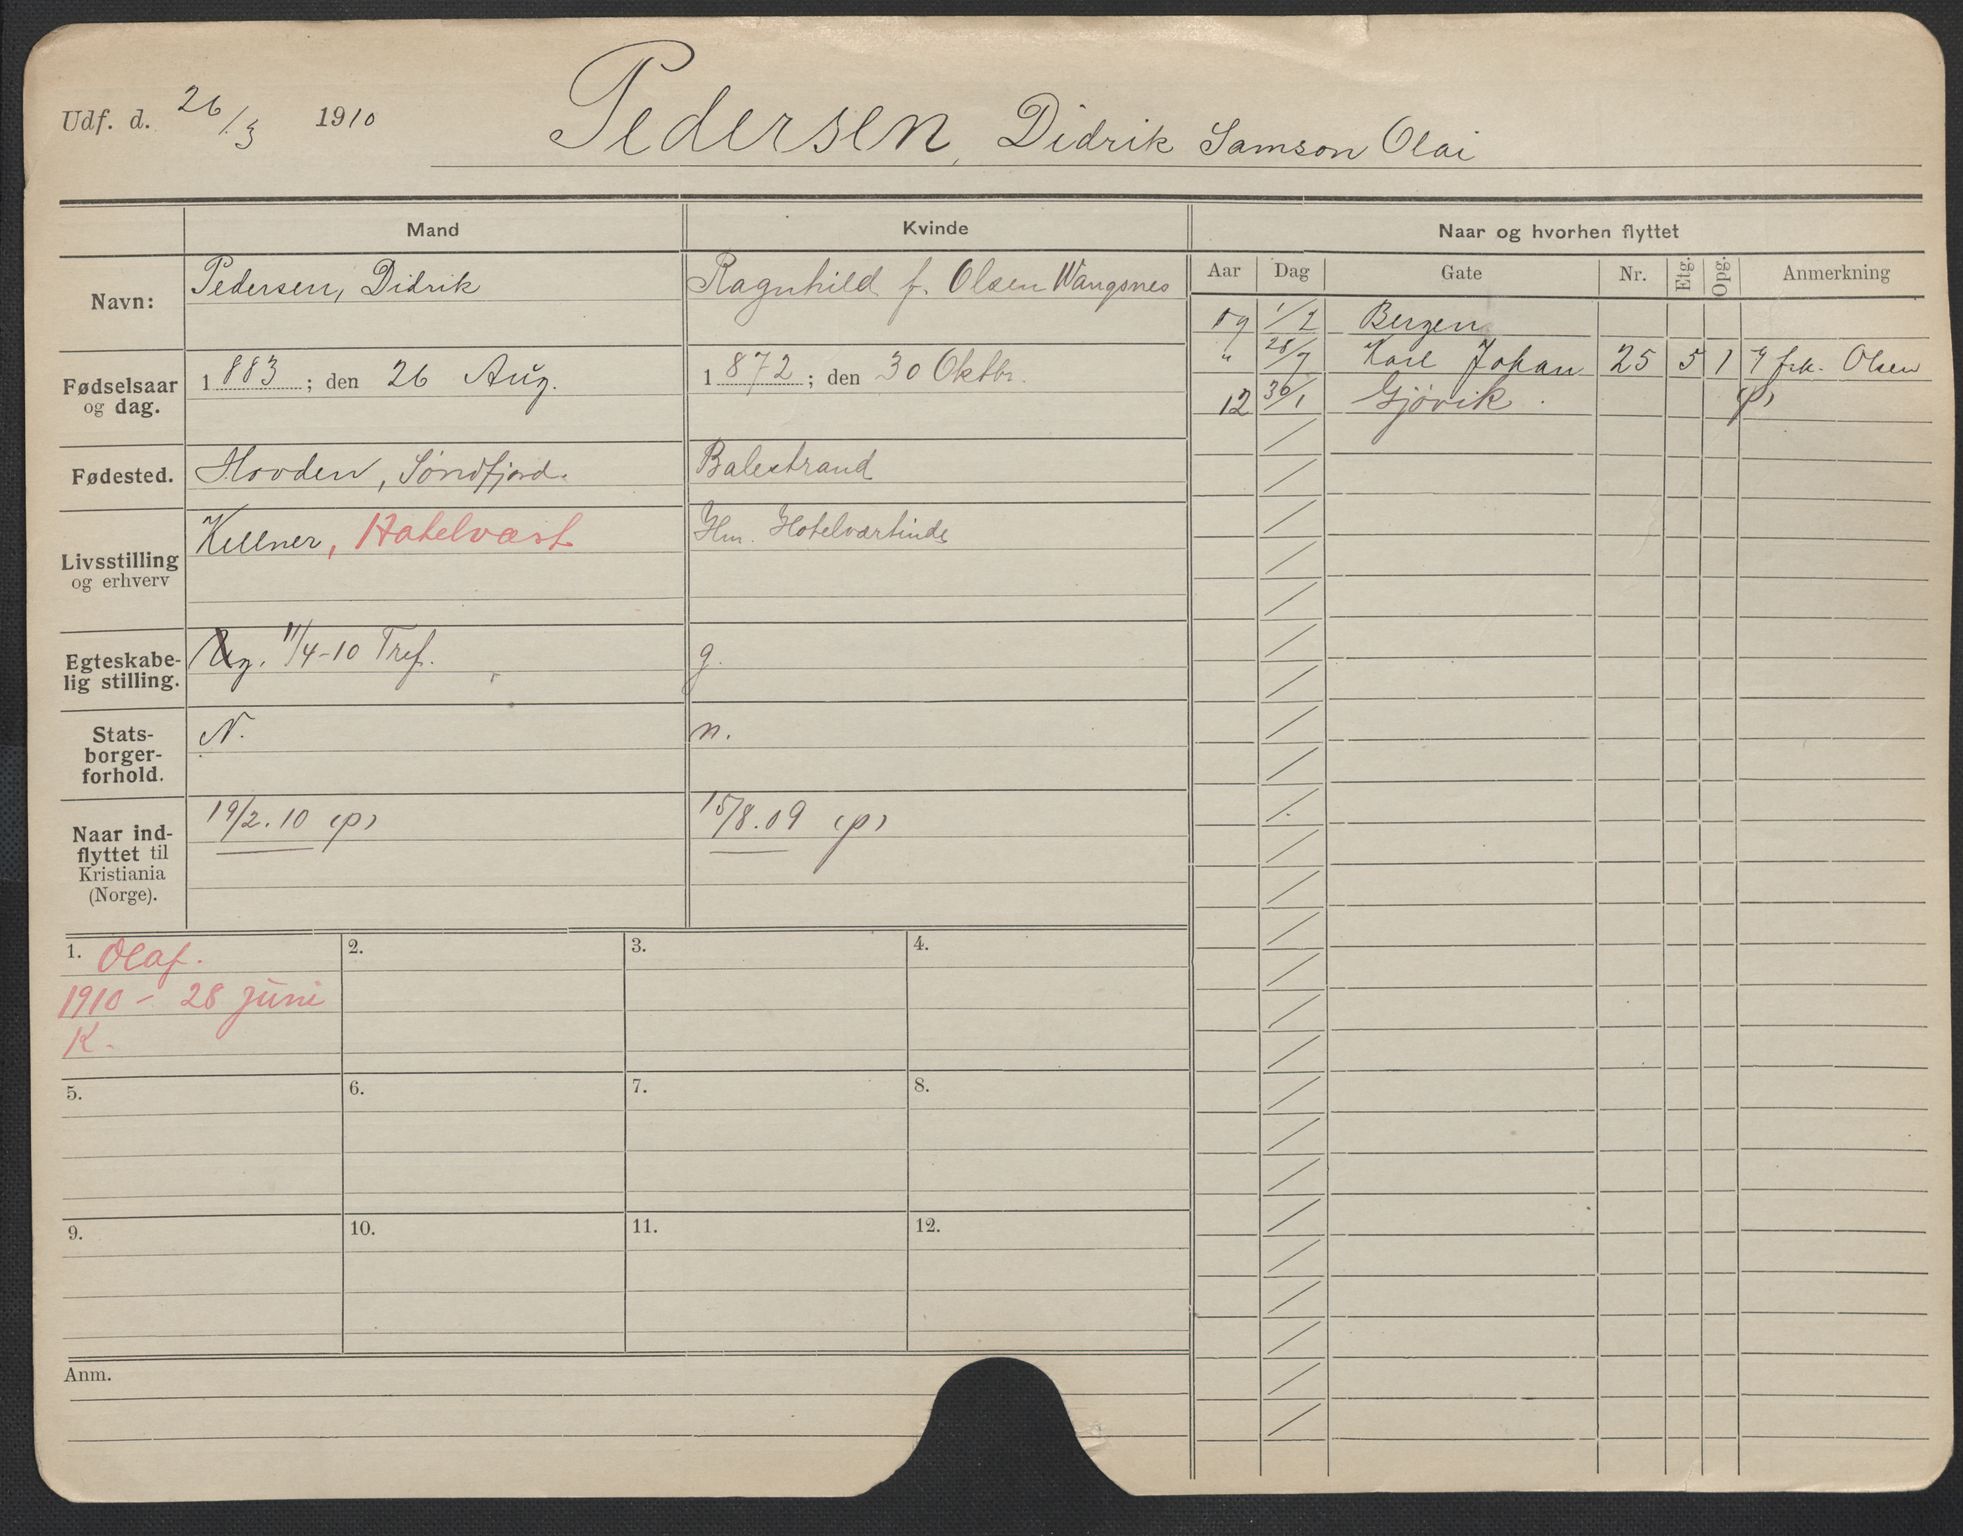 Udf. d. 26/3 1910
Pedersen, Didrik Samson Olai
Mand
Kvinde
Naar og hvorhen flyttet
Aar Dag Gate Nr. Etg. Opg. Anmerkning
Navn:
Pedersen, Didrik
Ragnhild f. Olsen Wangsnes
09 1/2 Bergen
" 28/7 Karl Johan 25 5 1 frk. Olsen
12 30/1 Gjövik. (p)
Fødselsaar
og dag.
1883; den 26 Aug.
1872; den 30 Oktbr.
Fødested.
Hovden, Söndfjord.
Balestrand
Livsstilling
og erhverv
Kellner, Hotelvært
Hm. Hotelværtinde
Egteskabe-
lig stilling.
Ug. 11/4-10 Tref.
g.
Stats-
borger-
forhold.
N.
n.
Naar ind-
flyttet til
Kristiania
(Norge).
19/2.10 (p)
15/8.09 (p)
1. Olaf.
1910 - 28 juni
K.
2.
3.
4.
5.
6.
7.
8.
9.
10.
11.
12.
Anm.